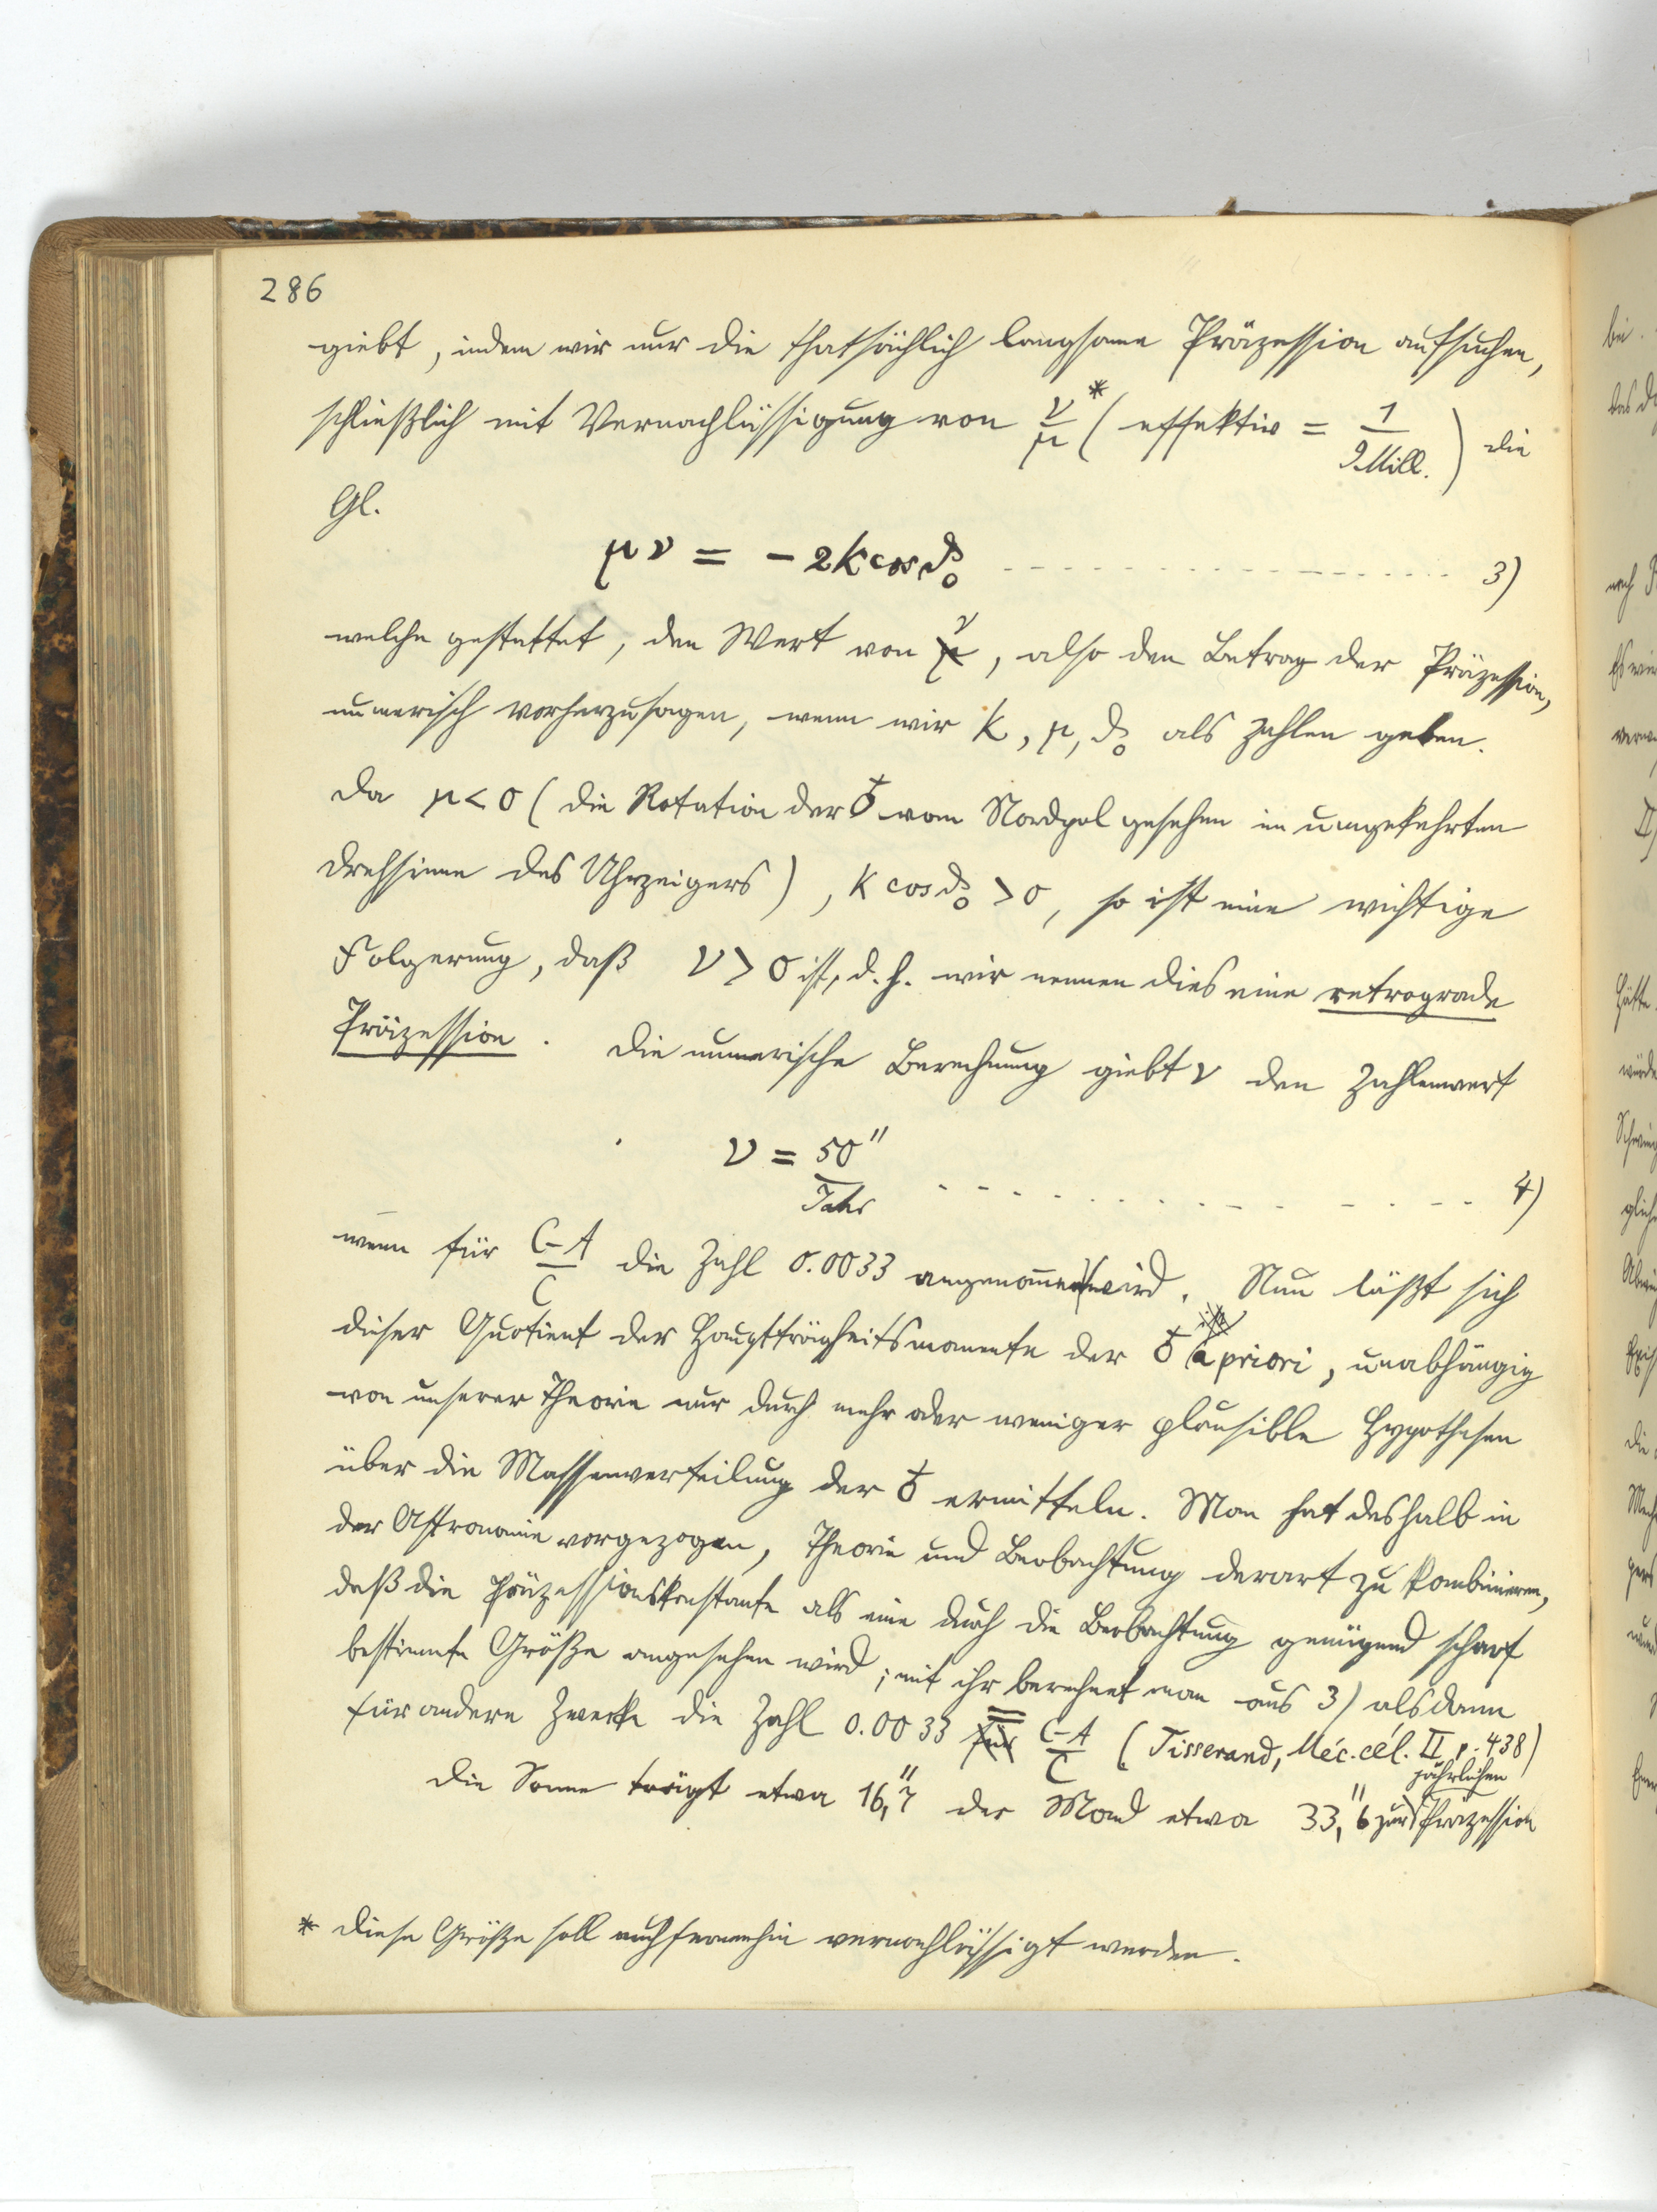 286
giebt, indem wir nur die thatsächlich langsame Präzession aufsuchen,
schließlich mit Vernachlässigung von ν/μ* (effektiv = 1/9Mill.) die
Gl.
μν = −2k cos ϑ₀ - - - - - - - - - - 3)
welche gestattet, den Wert von ν, also den Betrag der Präzession,
numerisch vorherzusagen, wenn wir k, μ, ϑ₀ als Zahlen geben.
Da μ < 0 (die Rotation der ♁ vom Nordpol gesehen im umgekehrten
Drehsinne des Uhrzeigers), k cos ϑ₀ > 0, so ist eine wichtige
Folgerung, daß ν > 0 ist, d. h. wir nennen dies eine retrograde
Präzession. Die numerische Berechnung giebt ν den Zahlenwert
ν = 50″/Jahr - - - - - - - - - - 4)
wenn für C−A/C die Zahl 0.0033 angenommen wird. Nun läßt sich
dieser Quotient der Hauptträgheitsmomente der ♁ a priori, unabhängig
von unserer Theorie nur durch mehr oder weniger plausible Hypothesen
über die Massenverteilung der ♁ ermitteln. Man hat deshalb in
der Astronomie vorgezogen, Theorie und Beobachtung derart zu kombinieren,
daß die Präzessionskonstante als eine durch die Beobachtung genügend scharf
bestimmte Größe angesehen wird; mit ihr berechnet man aus 3) alsdann
für andere Zwecke die Zahl 0.0033 = C−A/C (Tisserand, Méc. cél. II p. 438)
Die Sonne trägt etwa 16,″7 der Mond etwa 33,″6 zur jährlichen Präzession
* Diese Größe soll auch fernerhin vernachlässigt werden.